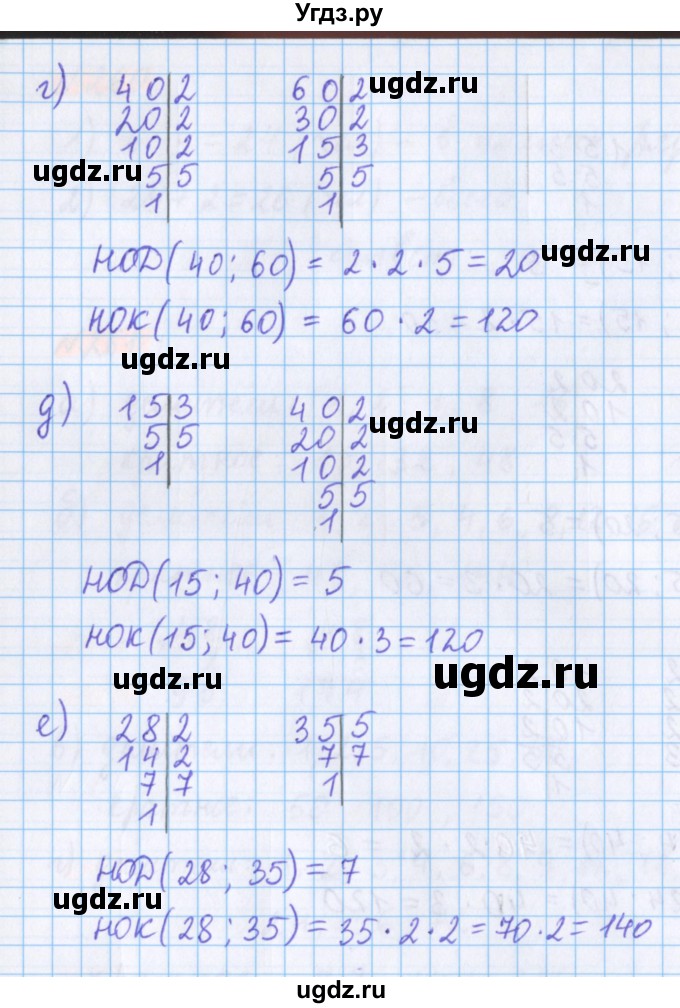 Угдз.ру
г) 40|2 60|2 ugdz.ru
20|2 30|2
10|2 15|3
ugdz.ru 5|5 5|5
1| 1|
НОД(40; 60) = 2·2·5 = 20 ugdz.ru
НОК(40; 60) = 60·2 = 120
ugdz.ru
д) 15|3 40|2 ugdz.ru
5|5 20|2
1| 10|2
5|5
1|
НОД(15; 40) = 5
НОК(15; 40) = 40·3 = 120
ugdz.ru ugdz.ru
е) 28|2 35|5
14|2 7|7
7|7 1|
1|
НОД(28; 35) = 7
ugdz.ru
НОК(28; 35) = 35·2·2 = 70·2 = 140
ugdz.ru